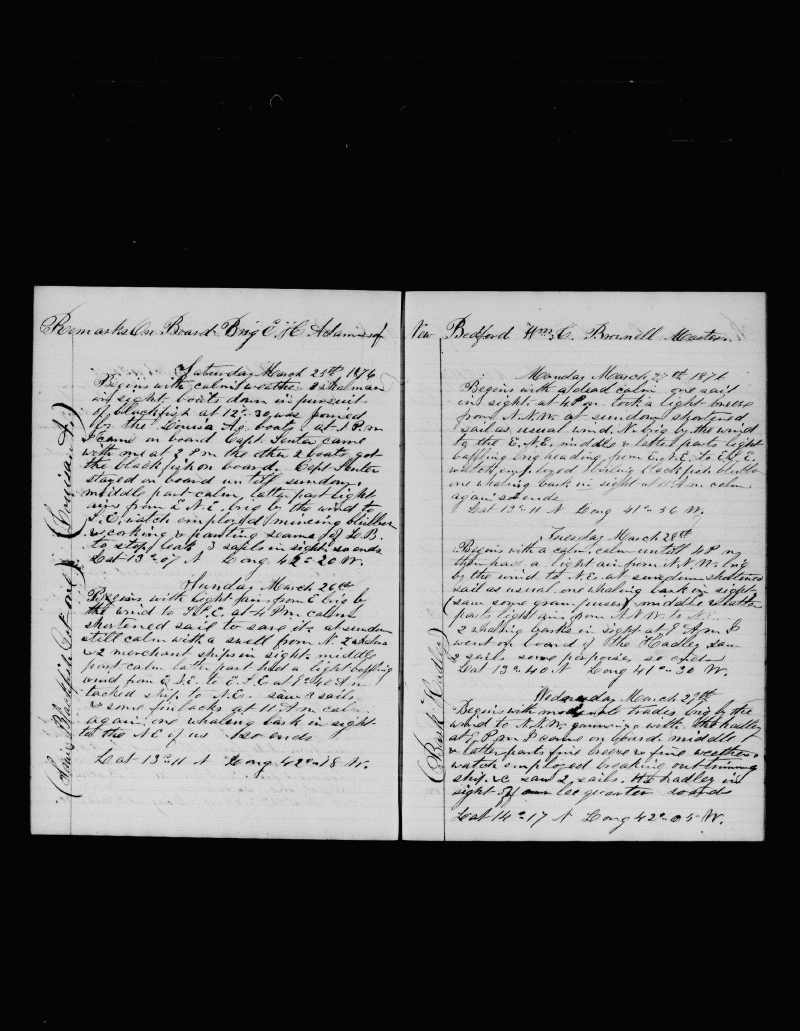 Remarks On Board Brig E. H. Adams of
Saturday March 25th 1876
Begins with calm weather 2 whalman
in sight boats down in pursuit
of blackfish at 12-30 was joined
by the Louisa A,s boats at 1 P.m
I came on board Capt. Senter came
with me at 2 Pm the other 2 boats got
the blackfish on board. Capt Senter
stayed on board untill sundown.
middle part calm, latter part light
airs from E N.E. brig by the wind to
S.E. watch employed mincing blubber
& corking & painting seams of L.B.
to stop leak 3 sails in sight. so ends
Lat 13-07 N Long 42-20 W.
Sunday March 26th
Begins with light fain from E brig by
the wind to S.S.E. at 4 Pm calm
shortened sail to save it at sundown
still calm with a swell from N. 2
& 2 merchant ships in sight. middle
part calm latter part had a light baffling
wind from E.S.E. to E.N.E at 1-40 A.m
tacked ship to N.E. saw 2 sails
& some finbacks at 11 A.m calm
again. one whaling bark in sight
to the NE of us so ends
Lat 13-11 N Long 42-18 W.
(Louisa A,)
(Saw Blackfish Got one)
New Bedford Wm. C. Brownell Master.
Monday March 27th 1876
Begins with a dead calm one sail
in sight. at 4 Pm took a light breeze
from N.N.W. at sundown shortened
sail as usual wind N. brig by the wind
to the E.N.E. middle & latter parts light
baffling brig heading from E.N.E. to E.S.E.
watch employed boiling blackfish blubber
one whaling bark in sight at 11 A.m calm
again so ends
Lat 13-11 N Long 41-56 W.
Tuesday March 28th
Begins with a calm, calm untill 4 P m
then had a light air from N.N.W. brig
by the wind to N.E. at sundown shortened
sail as usual one whaling bark in sight
(saw some grampuses) middle & latter
parts light airs from N.N.W. to
2 whaling barks in sight at 9 A.m I
went on board of the Hadley saw
2 sails some porpoise, so ends
Lat 13-40 N Long 41-30 W.
Wednesday March 29th
Begins with moderate trades, brig by the
wind to N.N.W. gamming with the hadley
at 9 Pm I came on board. middle
& latter parts fine breeze & fine weather
watch employed breaking out trimming
ship &c saw 2 sails. the hadley in
sight off our lee quarter so ends
Lat 14-17 N Long 42-05 W.
(Bark Hadley)